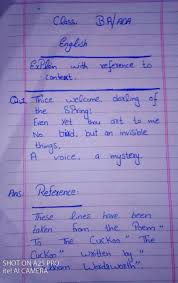 Class. BA/ADA
English
Explain with reference to
Context.
Qu.1 Thice welcome, darling of
the Spring!
Even Yet thou art to me
No bird, but an invisible
things,
A voice, a mystery.
Ans. Reference:
These lines have been
taken from the Poem "
To The Cuckoo" "The
Cuckoo" written by "
Wordsworth".
SHOT ON A25 PRO
itel AI CAMERA